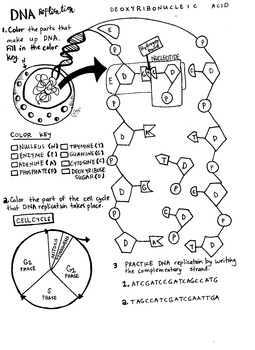 DNA Replication
DEOXYRIBONUCLEIC ACID
1. Color the parts that
make up DNA.
Fill in the color
key.
NUCLEOTIDE
COLOR KEY
NUCLEUS (N)
THYMINE (T)
ENZYME (E)
GUANINE (G)
ADENINE (A)
CYTOSINE (C)
PHOSPHATE (P)
DEOXYRIBOSE
SUGAR (D)
2. Color the part of the cell cycle
that DNA replication takes place.
CELL CYCLE
MITOSIS
G2
PHASE
G1
PHASE
S
PHASE
3 PRACTICE DNA replication by writing
the complementary strand:
1. ATCGATCCGATCAGCCATG
2. TAGCCATCGATCGAATTGA